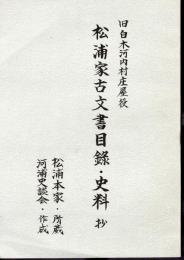 旧白木河内村庄屋役
松浦家古文書目錄・史料 抄
松浦本家・所蔵
河浦史談会・作成